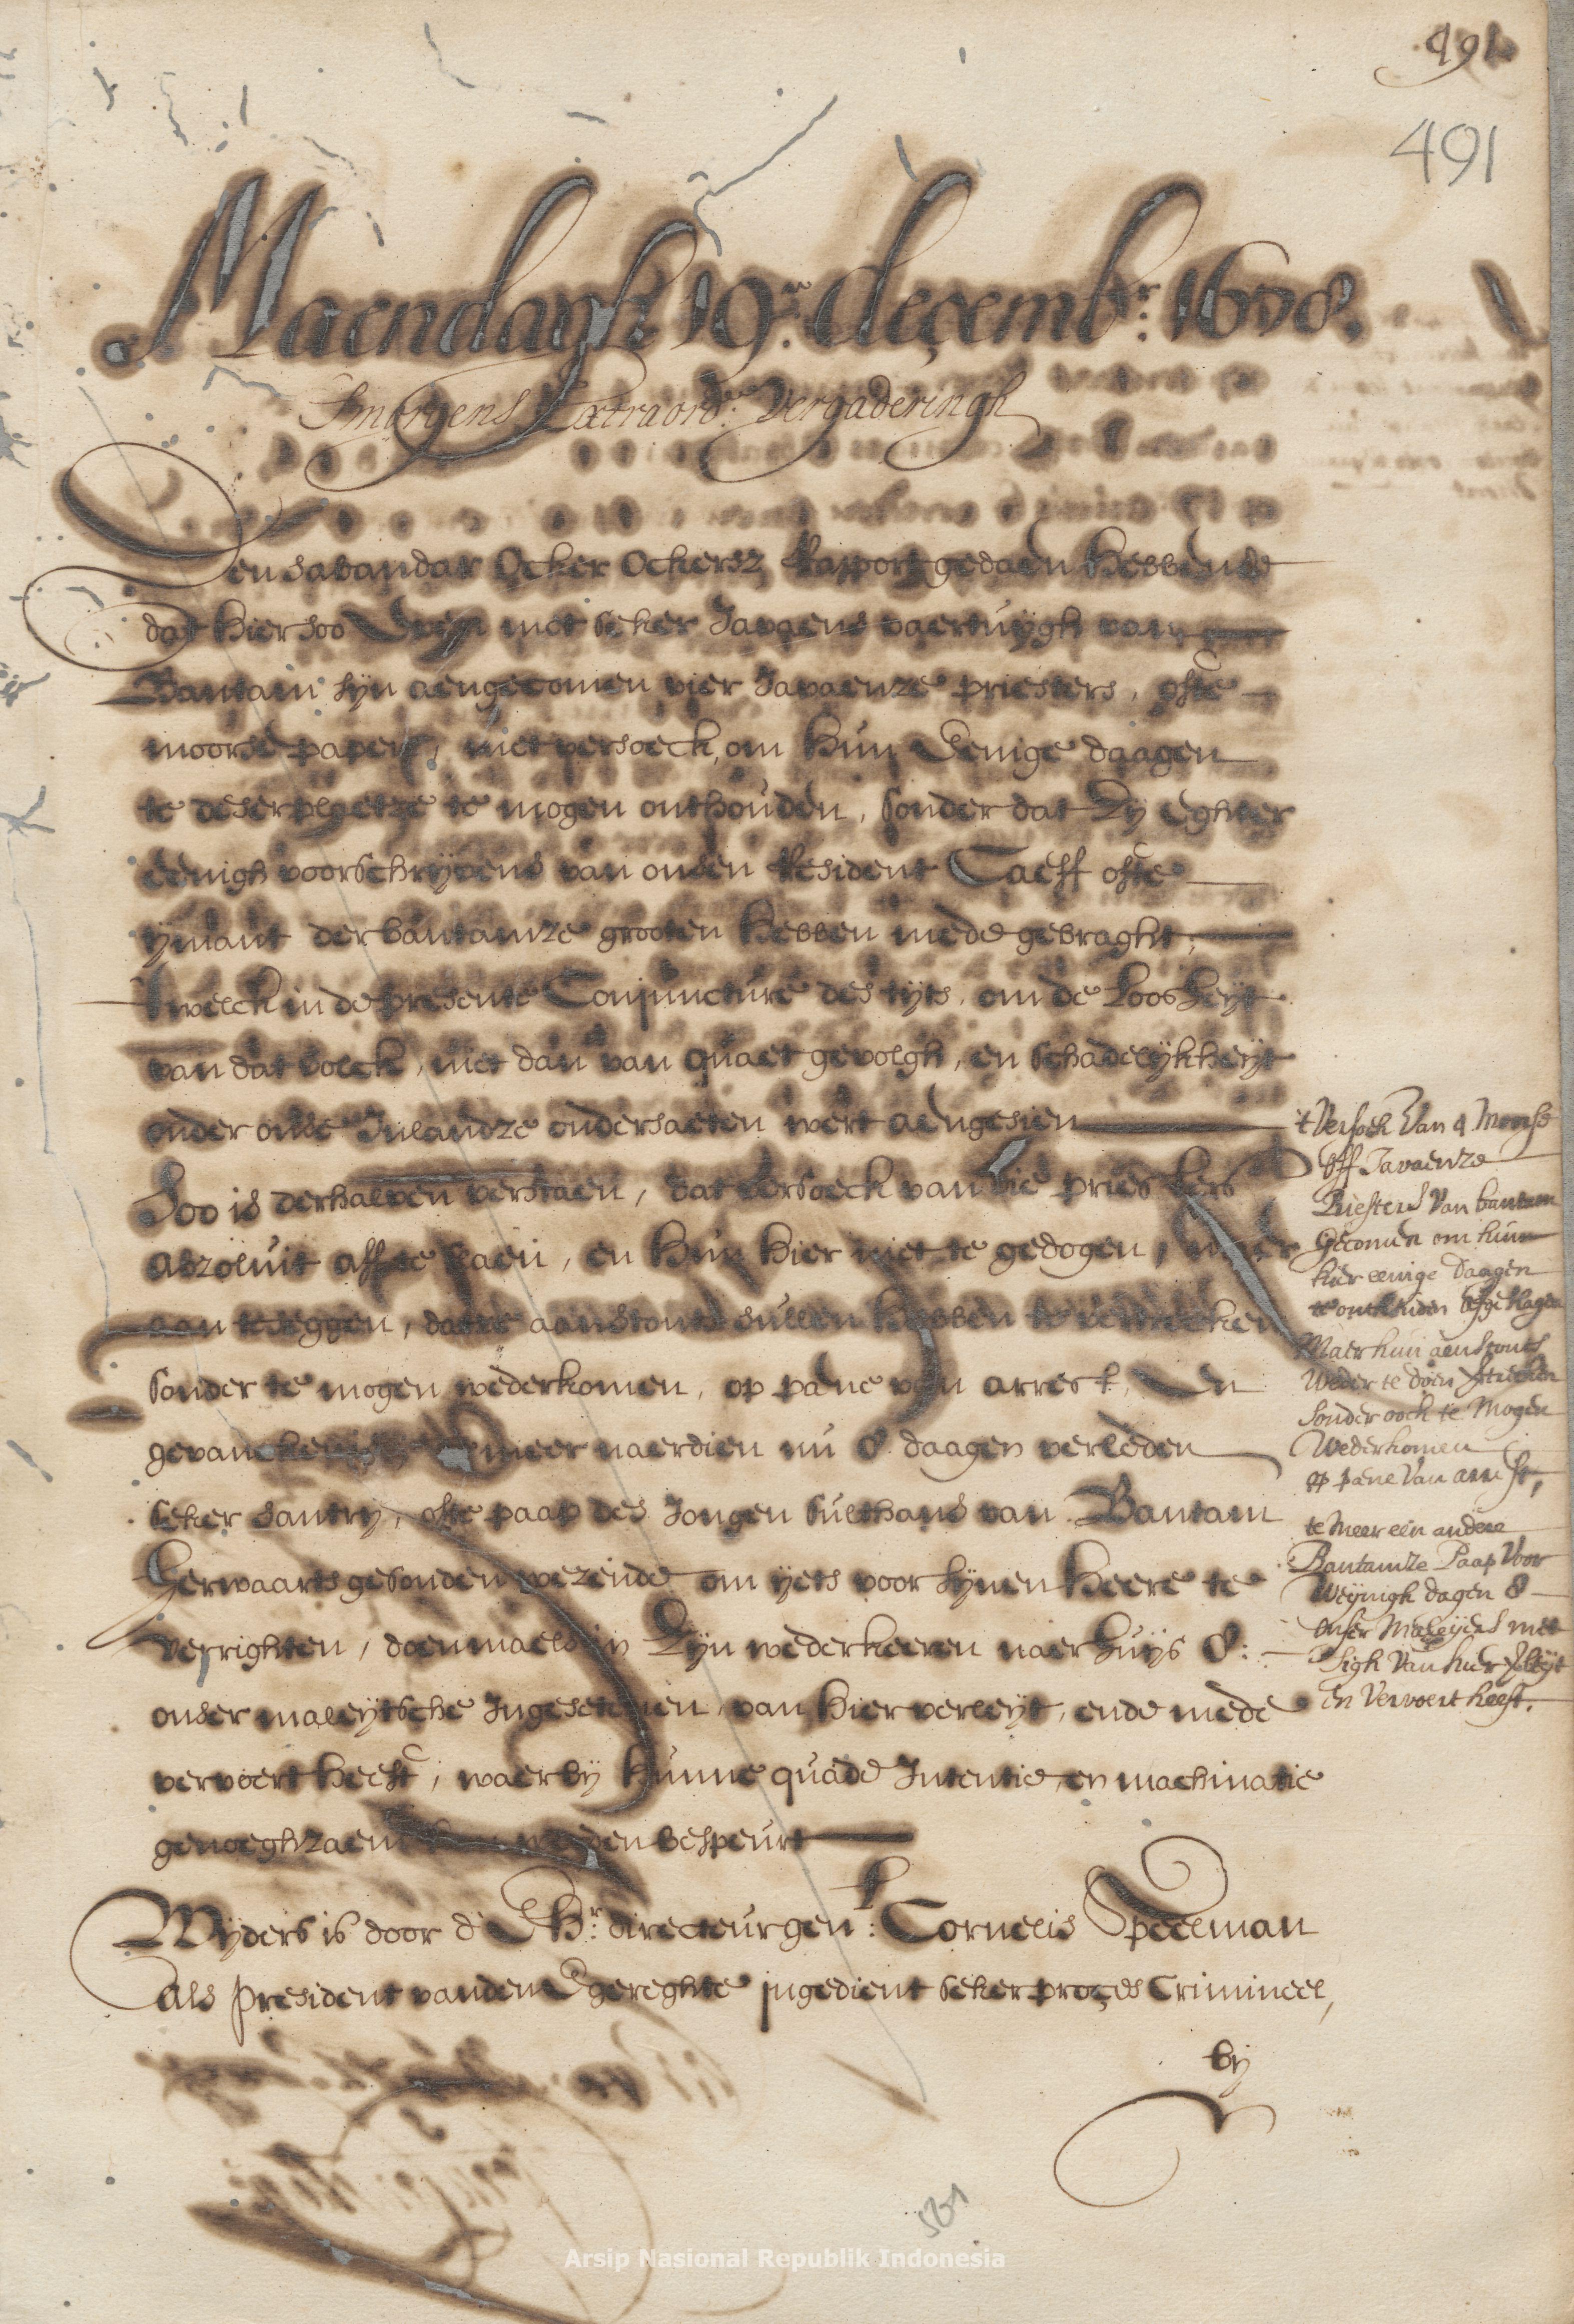 491
491
Maendagh 19.en decemb.r: 1678.
Smorgens Extraord.re Vergaderingh
Den sabandar Ocker Ockersz, Rapport gedaen hebbende
dat hier soo even met seker Javaens vaertuijgh van
Bantam sijn aengecomen vier Javaenze priesters, ofte
moorse papen, met versoeck, om hun eenige daagen
te deser plaetze te mogen onthouden, sonder dat zy eghter
eenigh voorschryvens van onsen Resident Caeff ofte
ijmant der bantamze grooten hebben mede gebraght;
t welck in de presente Conjuncture des tijts, om de Loosheijt
van dat volck, niet dan van quaet gevolgh, en schadelijkheijt
onder onse Inlandze ondersaeten wert aengesien
Soo is derhalven verstaen, dat versoeck van die priesters
abzoluit aff te slaen, en hun hier niet te gedogen, maer
aan te seggen, datse aanstonts sullen hebben te vertrecken
sonder te mogen wederkomen, op pane van arrest, en
gevanckenis te meer naerdien nu 8. daagen verleden
seker santry, ofte paap des Jongen Sulthans van Bantam
herwaarts gesonden wezende om ijets voor sijnen heere te
verrighten, doenmaels in zijn wederkeeren naer huijs 8:
onser maleytsche Ingesetenen, van hier verleyt, ende mede
vervoert heeft, waer by hunne quade Intentie, en machinatie
genoeghzaem kan werden bespeurt
Wijders is door d' E H.r: directeur gen.l: Cornelis Speelman
als president van den E gereghte ingedient seker proçes Crimineel,
by
't Versoek Van 4 Moorse
off Javaenze
Priesters Van bantam
gecomen om hun
hier eenige daagen
te onthouden afgeslagen
Maer hun aenstonts
Weder te doen vertrecken
Sonder ook te Mogen
Wederkomen
op pane Van arrest,
te Meer een andere
Bantamze Paap Voor
Weijnigh dagen 8
onser Maleyers met
sigh Van hier verleyt
en Vervoert heeft.
Arsip Nasional Republik Indonesia